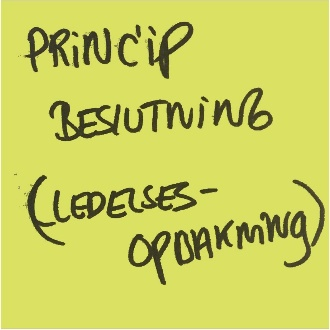 PRINCIP
BESLUTNING
(LEDELSES-
OPBAKNING)